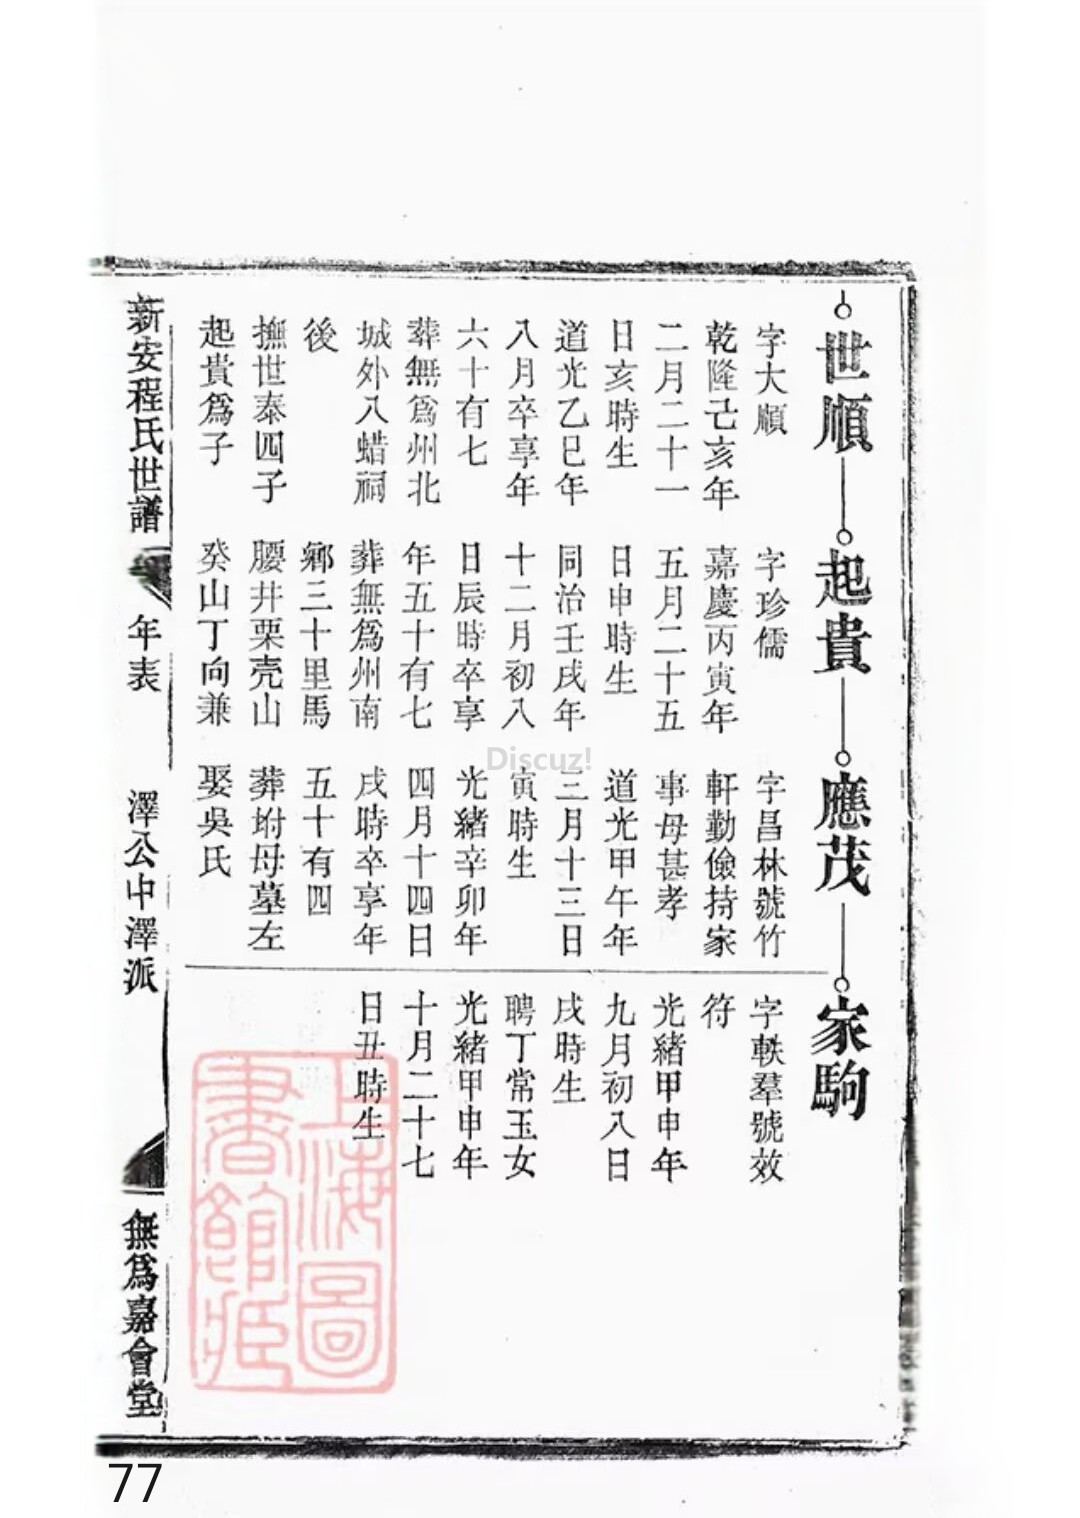 世順
字大順
乾隆己亥年
二月二十一
日亥時生
道光乙巳年
八月卒享年
六十有七
葬無爲州北
城外八蜡祠
後
撫世泰四子
起貴爲子
起貴
字珍儒
嘉慶丙寅年
五月二十五
日申時生
同治壬戌年
十二月初八
日辰時卒享
年五十有七
葬無爲州南
鄉三十里馬
腰井栗壳山
癸山丁向兼
應茂
字昌林號竹
軒勤儉持家
事母甚孝
道光甲午年
三月十三日
寅時生
光緒辛卯年
四月十四日
戌時卒享年
五十有四
葬坿母墓左
娶吳氏
家駒
字軼羣號效
符
光緒甲申年
九月初八日
戌時生
聘丁常玉女
光緒甲申年
十月二十七
日丑時生
新安程氏世譜
年表
澤公中澤派
無爲嘉會堂
上海圖
書館藏
Discuz!
77